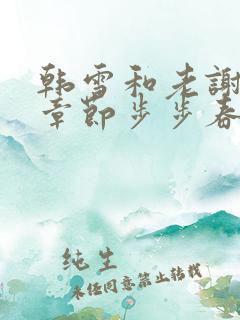 韩雪和老謝
章節步步春
纯生
未经同意禁止转载